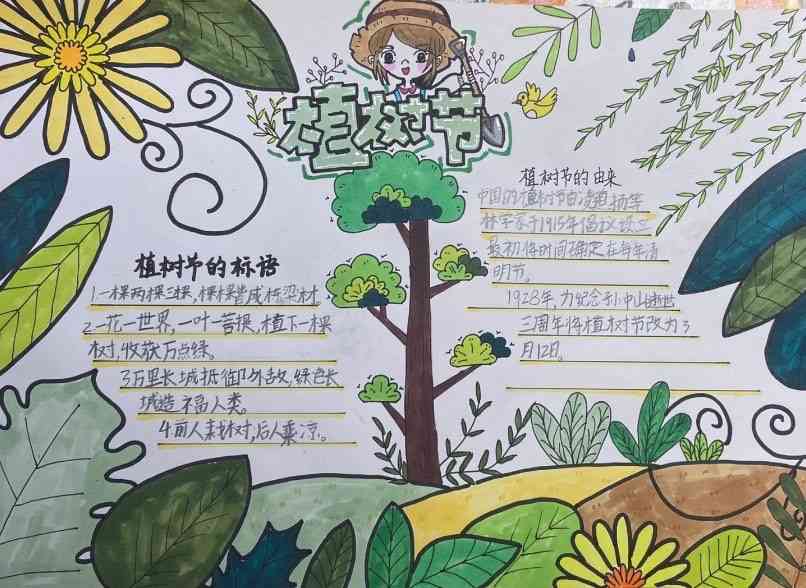 植树节
植树节的标语
1.一棵两棵三棵,棵棵皆成栋梁材
2.一花一世界,一叶一菩提,植下一棵
树,收获万点绿。
3.万里长城抵御外敌,绿色长
城造福人类。
4.前人栽树,后人乘凉。
植树节的由来
中国的植树节由凌道扬等
林学家于1915年倡议设立
最初将时间确定在每年清
明节。
1928年,为纪念孙中山逝世
三周年将植树节改为3
月12日。